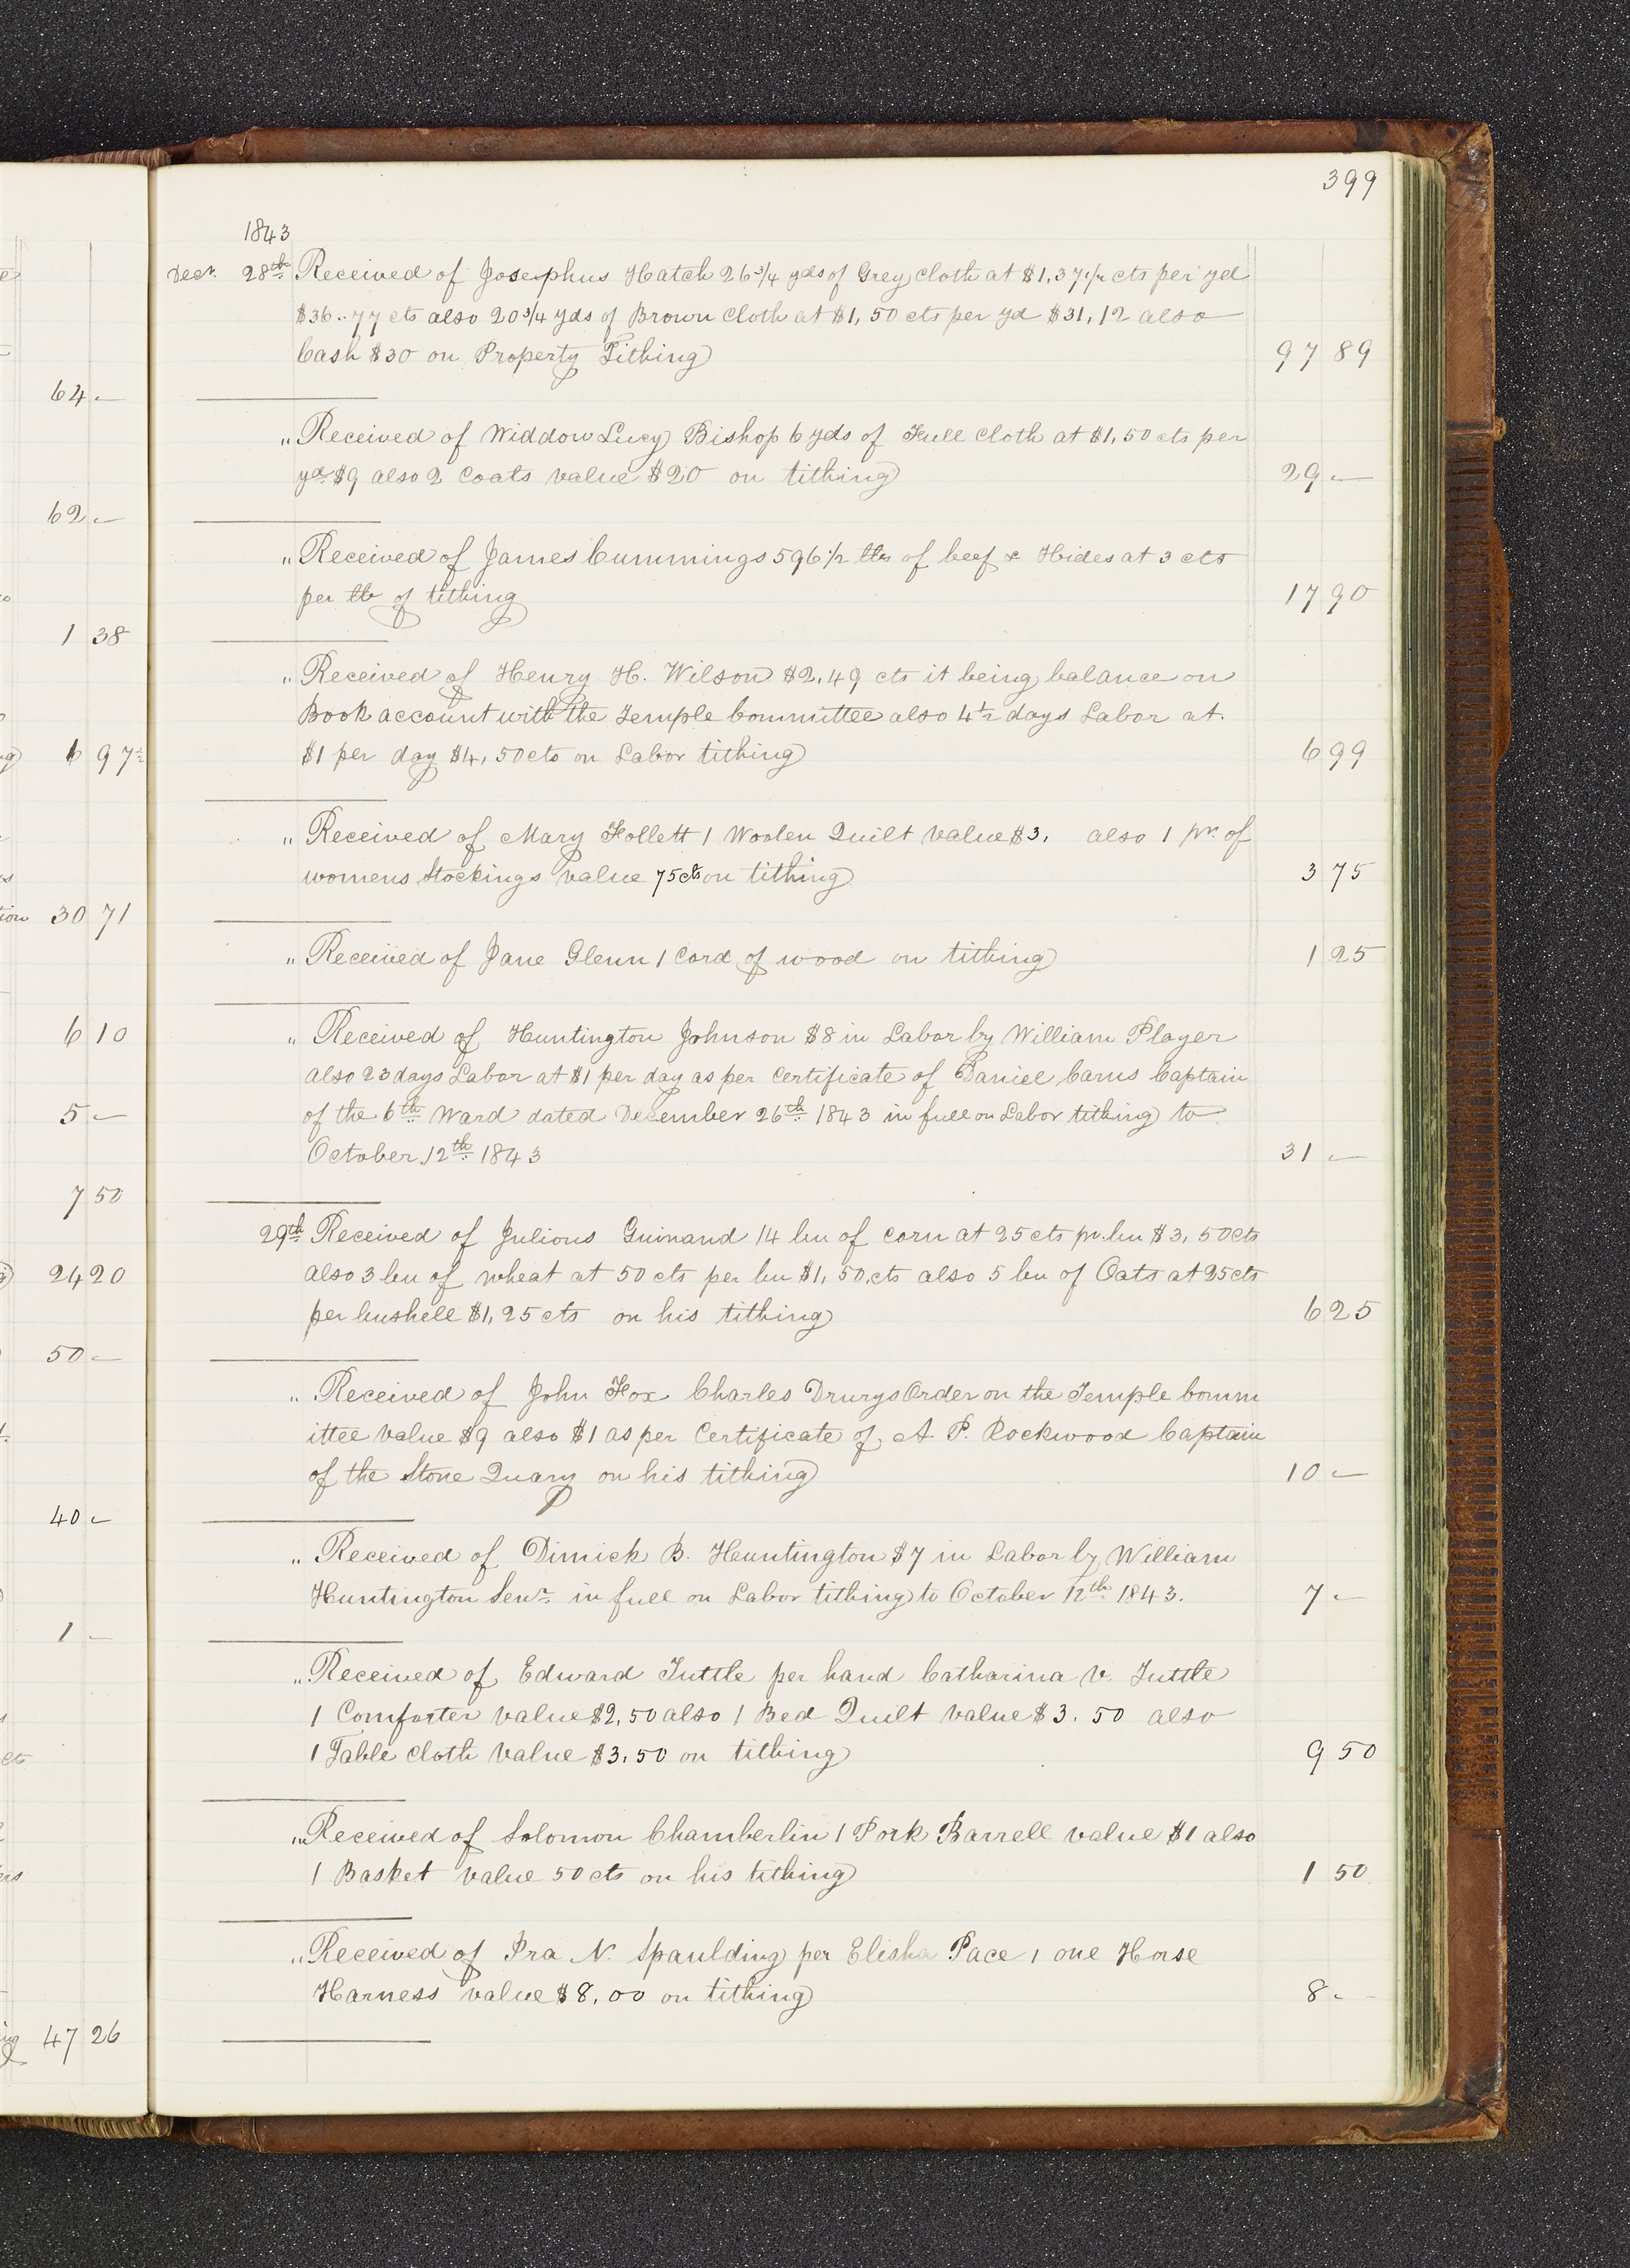 399
1843
Decr. 28th Received of Josephus Hatch 26 3/4 yds of Grey Cloth at $1,37 1/2 cts per yd
$36..77 cts also 20 3/4 yds of Brown Cloth at $1,50 cts per yd $31,12 also
Cash $30 on Property Tithing 97 89
64 -
" Received of Widdow Lucy Bishop 6 yds of Full Cloth at $1,50 cts per
yd $9 also 2 Coats value $20 on tithing 29 -
62 -
" Received of James Cummings 596 1/2 lbs of beef & Hides at 3 cts
per lb of tithing 17 90
1 38
" Received of Henry H. Wilson $2.49 cts it being balance on
Book account with the Temple Committee also 4 1/2 days Labor at
$1 per day $4,50 cts on Labor tithing 6 99
6 97 1/2
" Received of Mary Follett 1 Woolen Quilt value $3, also 1 pr. of
womens Stockings value 75 cts on tithing 3 75
30 71
" Received of Jane Glenn 1 Cord of wood on tithing 1 25
" Received of Huntington Johnson $8 in Labor by William Player
6 10
also 23 days Labor at $1 per day as per Certificate of Daniel Carns Captain
of the 6th Ward dated December 26th 1843 in full on Labor tithing to
5 -
October 12th 1843 31 -
7 50
29th Received of Julious Guinand 14 bu of corn at 25 cts pr. bu $3,50 cts
also 3 bu of wheat at 50 cts per bu $1,50 cts also 5 bu of Oats at 25 cts
24 20
per bushell $1,25 cts on his tithing 6 25
50 -
" Received of John Fox Charles Drurys Order on the Temple Comm
ittee value $9 also $1 as per Certificate of A P. Rockwood Captain
of the Stone Quary on his tithing 10 -
40 -
" Received of Dimick B. Huntington $7 in Labor by William
Huntington Senr. in full on Labor tithing to October 12th 1843. 7 -
1 -
" Received of Edward Tuttle per hand Catharina V. Tuttle
1 Comforter value $2,50 also 1 Bed Quilt value $3.50 also
1 Table Cloth value $3.50 on tithing 9 50
cts
" Received of Solomon Chamberlin 1 Pork Barrell value $1 also
1 Basket value 50 cts on his tithing 1 50
" Received of Ira N. Spaulding per Elisha Pace 1 one Horse
Harness value $8,00 on tithing 8 -
47 26